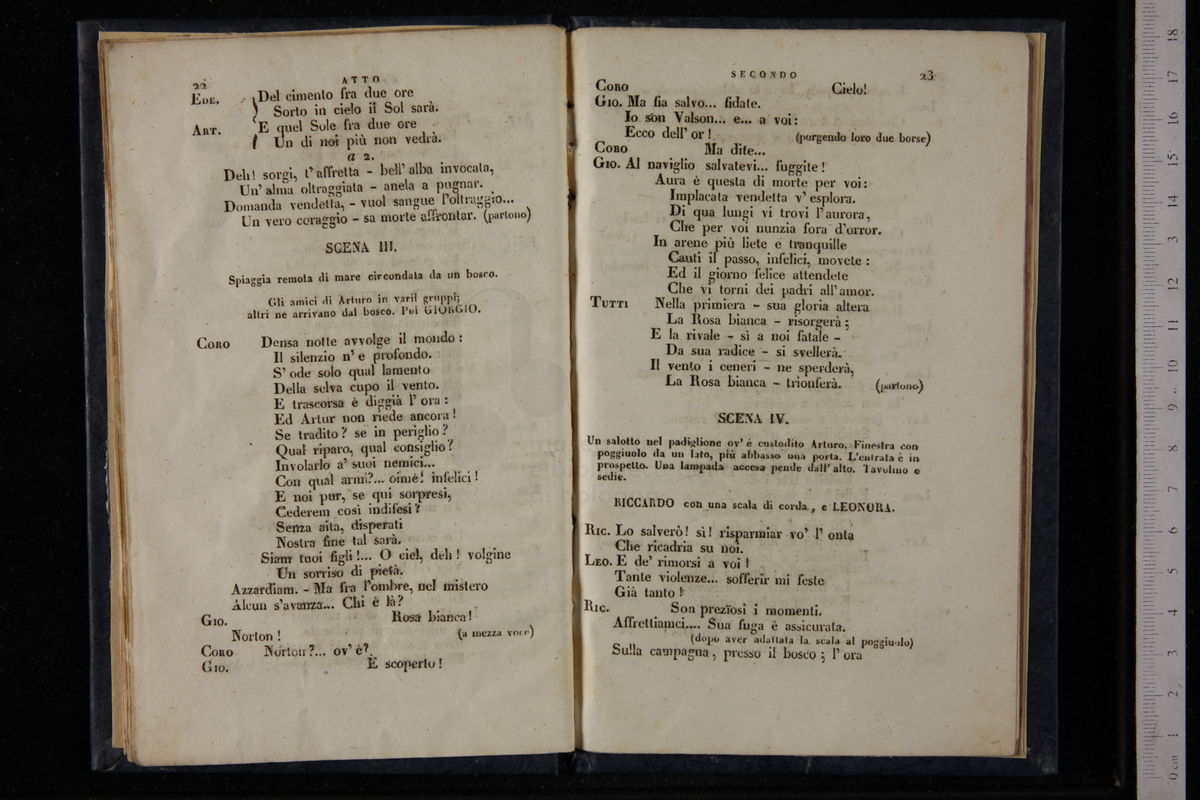 22
ATTO
EDE. Del cimento fra due ore
Sorto in cielo il Sol sarà.
ART. E quel Sole fra due ore
Un di noi più non vedrà.
a 2.
Deh! sorgi, t'affretta - bell' alba invocata,
Un' alma oltraggiata - anela a pugnar.
Domanda vendetta, - vuol sangue l'oltraggio...
Un vero coraggio - sa morte affrontar. (partono)
SCENA III.
Spiaggia remota di mare circondata da un bosco.
Gli amici di Arturo in varii gruppi;
altri ne arrivano dal bosco. Poi GIORGIO.
CORO Densa notte avvolge il mondo :
Il silenzio n' e profondo.
S' ode solo qual lamento
Della selva cupo il vento.
E trascorsa è diggià l' ora :
Ed Artur non riede ancora!
Se tradito? se in periglio?
Qual riparo, qual consiglio?
Involarlo a' suoi nemici...
Con qual armi?... oimè! infelici!
E noi pur, se qui sorpresi,
Cederem così indifesi?
Senza aita, disperati
Nostra fine tal sarà.
Siam tuoi figli!... O ciel, deh! volgine
Un sorriso di pietà.
Azzardiam. - Ma fra l'ombre, nel mistero
Alcun s'avanza... Chi è là?
GIO. Rosa bianca!
Norton! (a mezza voce)
CORO Norton?... ov' è?
GIO. È scoperto!
SECONDO
23
CORO Cielo!
GIO. Ma fia salvo... fidate.
Io son Valson... e... a voi:
Ecco dell' or! (porgendo loro due borse)
CORO Ma dite...
GIO. Al naviglio salvatevi... fuggite!
Aura è questa di morte per voi:
Implacata vendetta v' esplora.
Di qua lungi vi trovi l'aurora,
Che per voi nunzia fora d'orror.
In arene più liete e tranquille
Cauti il passo, infelici, movete :
Ed il giorno felice attendete
Che vi torni dei padri all' amor.
TUTTI Nella primiera - sua gloria altera
La Rosa bianca - risorgerà;
E la rivale - sì a noi fatale -
Da sua radice - si svellerà.
Il vento i ceneri - ne sperderà,
La Rosa bianca - trionferà. (partono)
SCENA IV.
Un salotto nel padiglione ov' è custodito Arturo. Finestra con
poggiuolo da un lato, più abbasso una porta. L'entrata è in
prospetto. Una lampada accesa pende dall' alto. Tavolino e
sedie.
RICCARDO con una scala di corda, e LEONORA.
RIC. Lo salverò! sì! risparmiar vo' l' onta
Che ricadria su noi.
LEO. E de' rimorsi a voi!
Tante violenze... sofferir mi feste
Già tanto!
RIC. Son prezïosi i momenti.
Affrettiamci.... Sua fuga è assicurata.
(dopo aver adattata la scala al poggiuolo)
Sulla campagna, presso il bosco; l' ora
0 cm 1 2 3 4 5 6 7 8 9 10 11 12 13 14 15 16 17 18